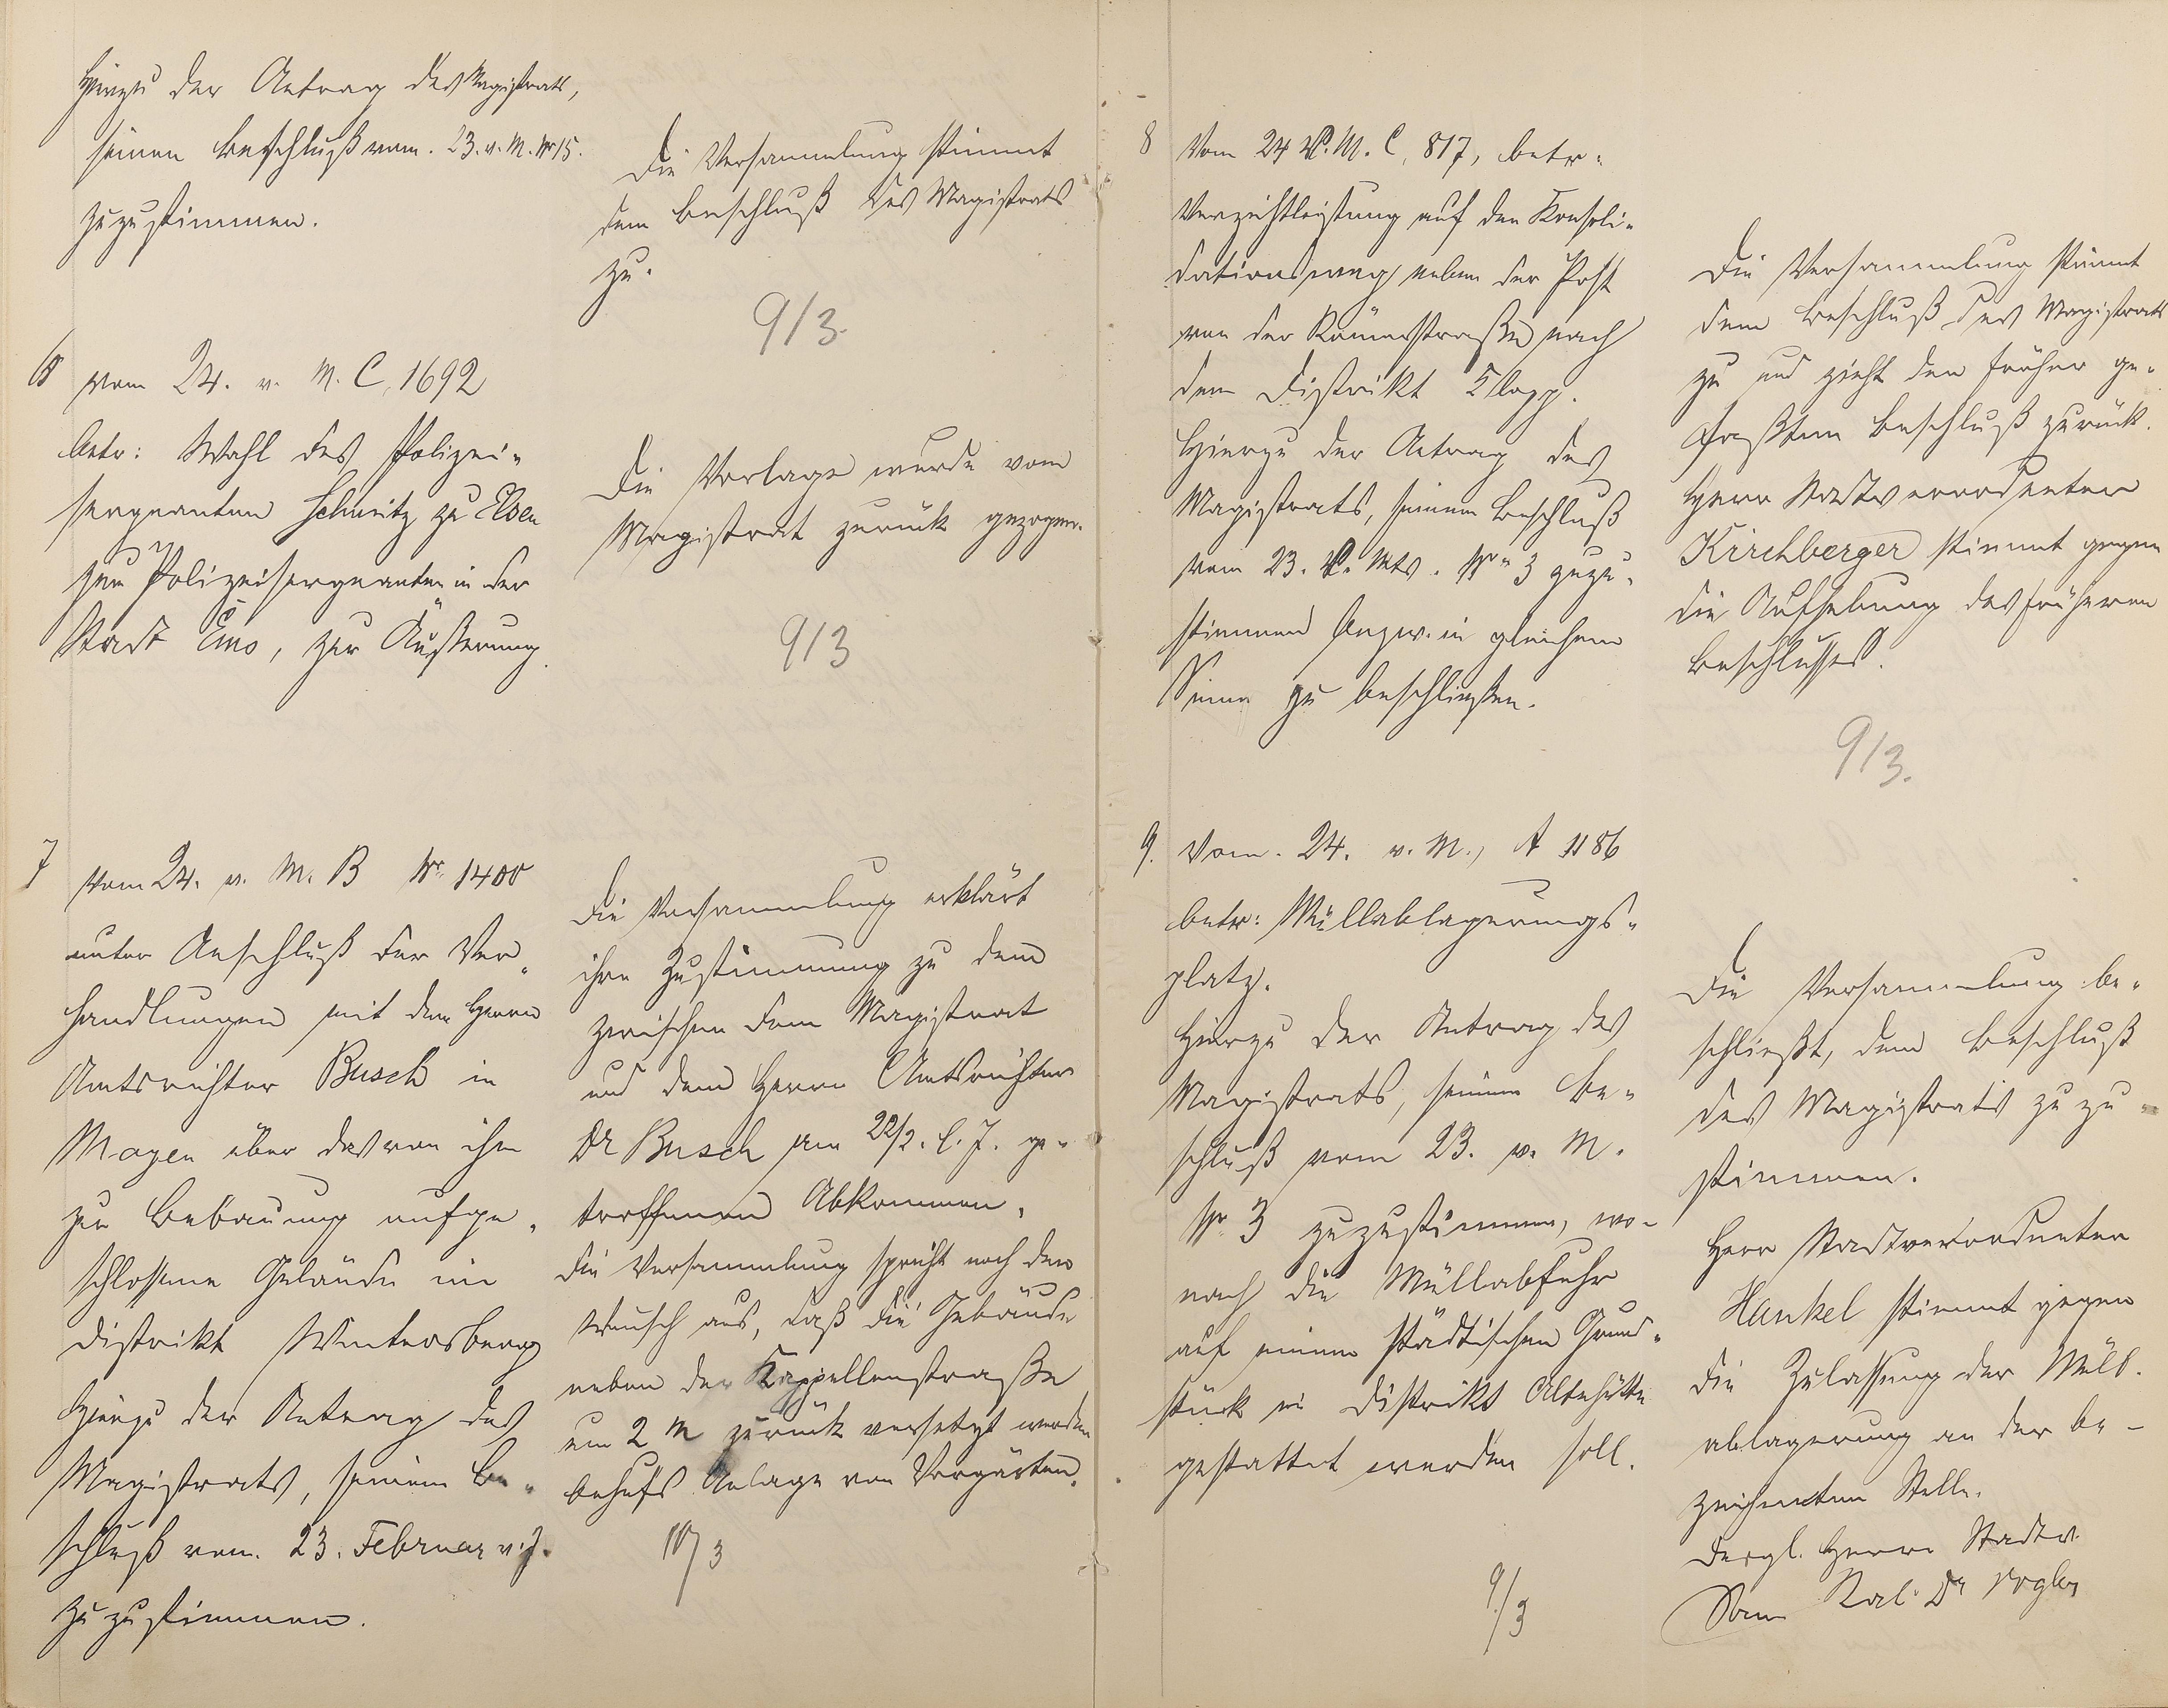 Hierzu der Antrag des Magistrats,
seinem Beschluß vom. 23. v. M. Nr 15.
zuzustimmen.
Die Versammlung stimmt
dem Beschluß des Magistrats
zu.
9/3.
6 vom 24. v. M. C, 1692
betr: Wahl des Polizei-
sergeanten Schmitz zu Elsen
zum Polizeisergeanten in der
Stadt Ems, zur Äußerung.
Die Vorlage wurde vom
Magistrat zurück gezogen.
9/3
7 vom 24. v. M. B Nr. 1400
unter Anschluß der Ver-
handlungen mit dem Herrn
Amtsrichter Busch in
Mayen über das von ihm
zur Bebauung aufge-
schlossene Gelände im
Distrikt Wintersberg
Hierzu der Antrag des
Magistrats, seinem Be-
schluß vom. 23. Februar v. J.
zuzustimmen.
Die Versammlung erklärt
ihre Zustimmung zu dem
zwischen dem Magistrat
und dem Herrn Amtsrichter
Dr Busch am 22/2. l. J. ge-
troffenen Abkommen.
Die Versammlung spricht noch den
Wunsch aus, daß die Gebäude
neben der Kappellenstraße
um 2 m zurück versetzt werden
behufs Anlage von Vorgärten.
10/3
8 Vom 24 v. M. C, 817, betr.
Verzichtleistung auf den Konsoli-
dationsweg neben der Post
von der Römerstraße nach
dem Distrikt Klopp.
Hierzu der Antrag des
Magistrats, seinem Beschluß
vom 23. v. Mts. Nr. 3 zuzu-
stimmen bezw. in gleichem
Sinne zu beschließen.
Die Versammlung stimmt
dem Beschluß des Magistrats
zu und zieht den früher ge-
faßten Beschluß zurück.
Herr Stadtverordneter
Kirchberger stimmt gegen
die Aufhebung des früheren
Beschlusses.
9/3.
9. Vom. 24. v. M., A 1186
betr: Müllablagerungs-
platz.
Hierzu der Antrag des
Magistrats, seinem Be-
schluß vom 23. v. M.
Nr. 3 zuzustimmen, wo-
nach die Müllabfuhr
auf einem städtischen Grund-
stück im Distrikt Altehütte
gestattet werden soll.
Die Versammlung be-
schließt, dem Beschluß
des Magistrats zu zu-
stimmen.
Herr Stadtverordneter
Hankel stimmt gegen
die Zulassung der Müll-
ablagerung an der be-
zeichneten Stelle.
Desgl. Herr Stadtv.
San. Rat Dr Vogler
9/3